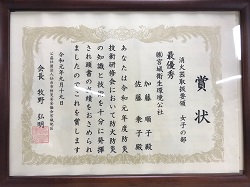 賞状
消火器取扱警備 女子の部
最優秀
㈱宮城衛生環境公社
加藤 順子殿
佐藤 乗子殿
あなたは令和元年度防火
技術研修会において防火防災
の知識と技術を十分に発揮
され頭書の成績をおさめられ
ましたのでこれを賞します
令和元年九月十九日
会長 牧野 弘明